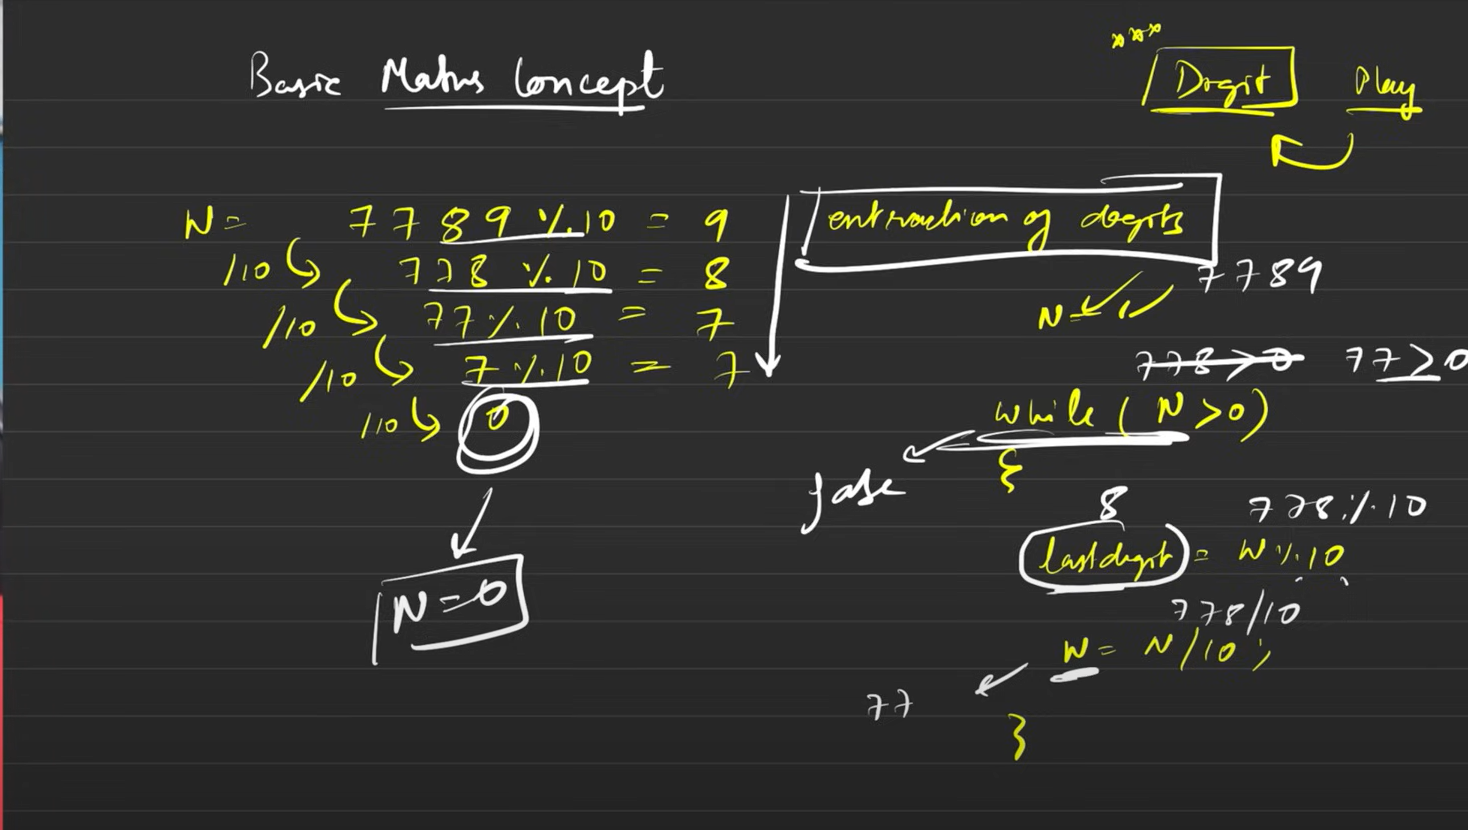 Basic Maths Concept
*** Digit Play
N = 7789 % 10 = 9
/10 778 % 10 = 8
/10 77 % 10 = 7
/10 7 % 10 = 7
/10 0
N = 0
extraction of digits
7789
N =
778 > 0 77 > 0
while ( N > 0 )
{
false
8 778 % 10
lastdigit = N % 10
778/10
N = N/10;
77
}